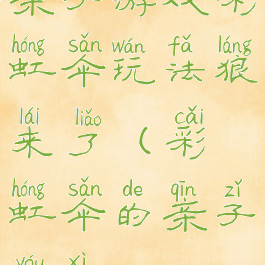 亲子游戏彩
hóng sǎn wán fǎ láng
虹伞玩法狼
lái liǎo cǎi
来了（彩
hóng sǎn de qīn zǐ
虹伞的亲子
yóu xì